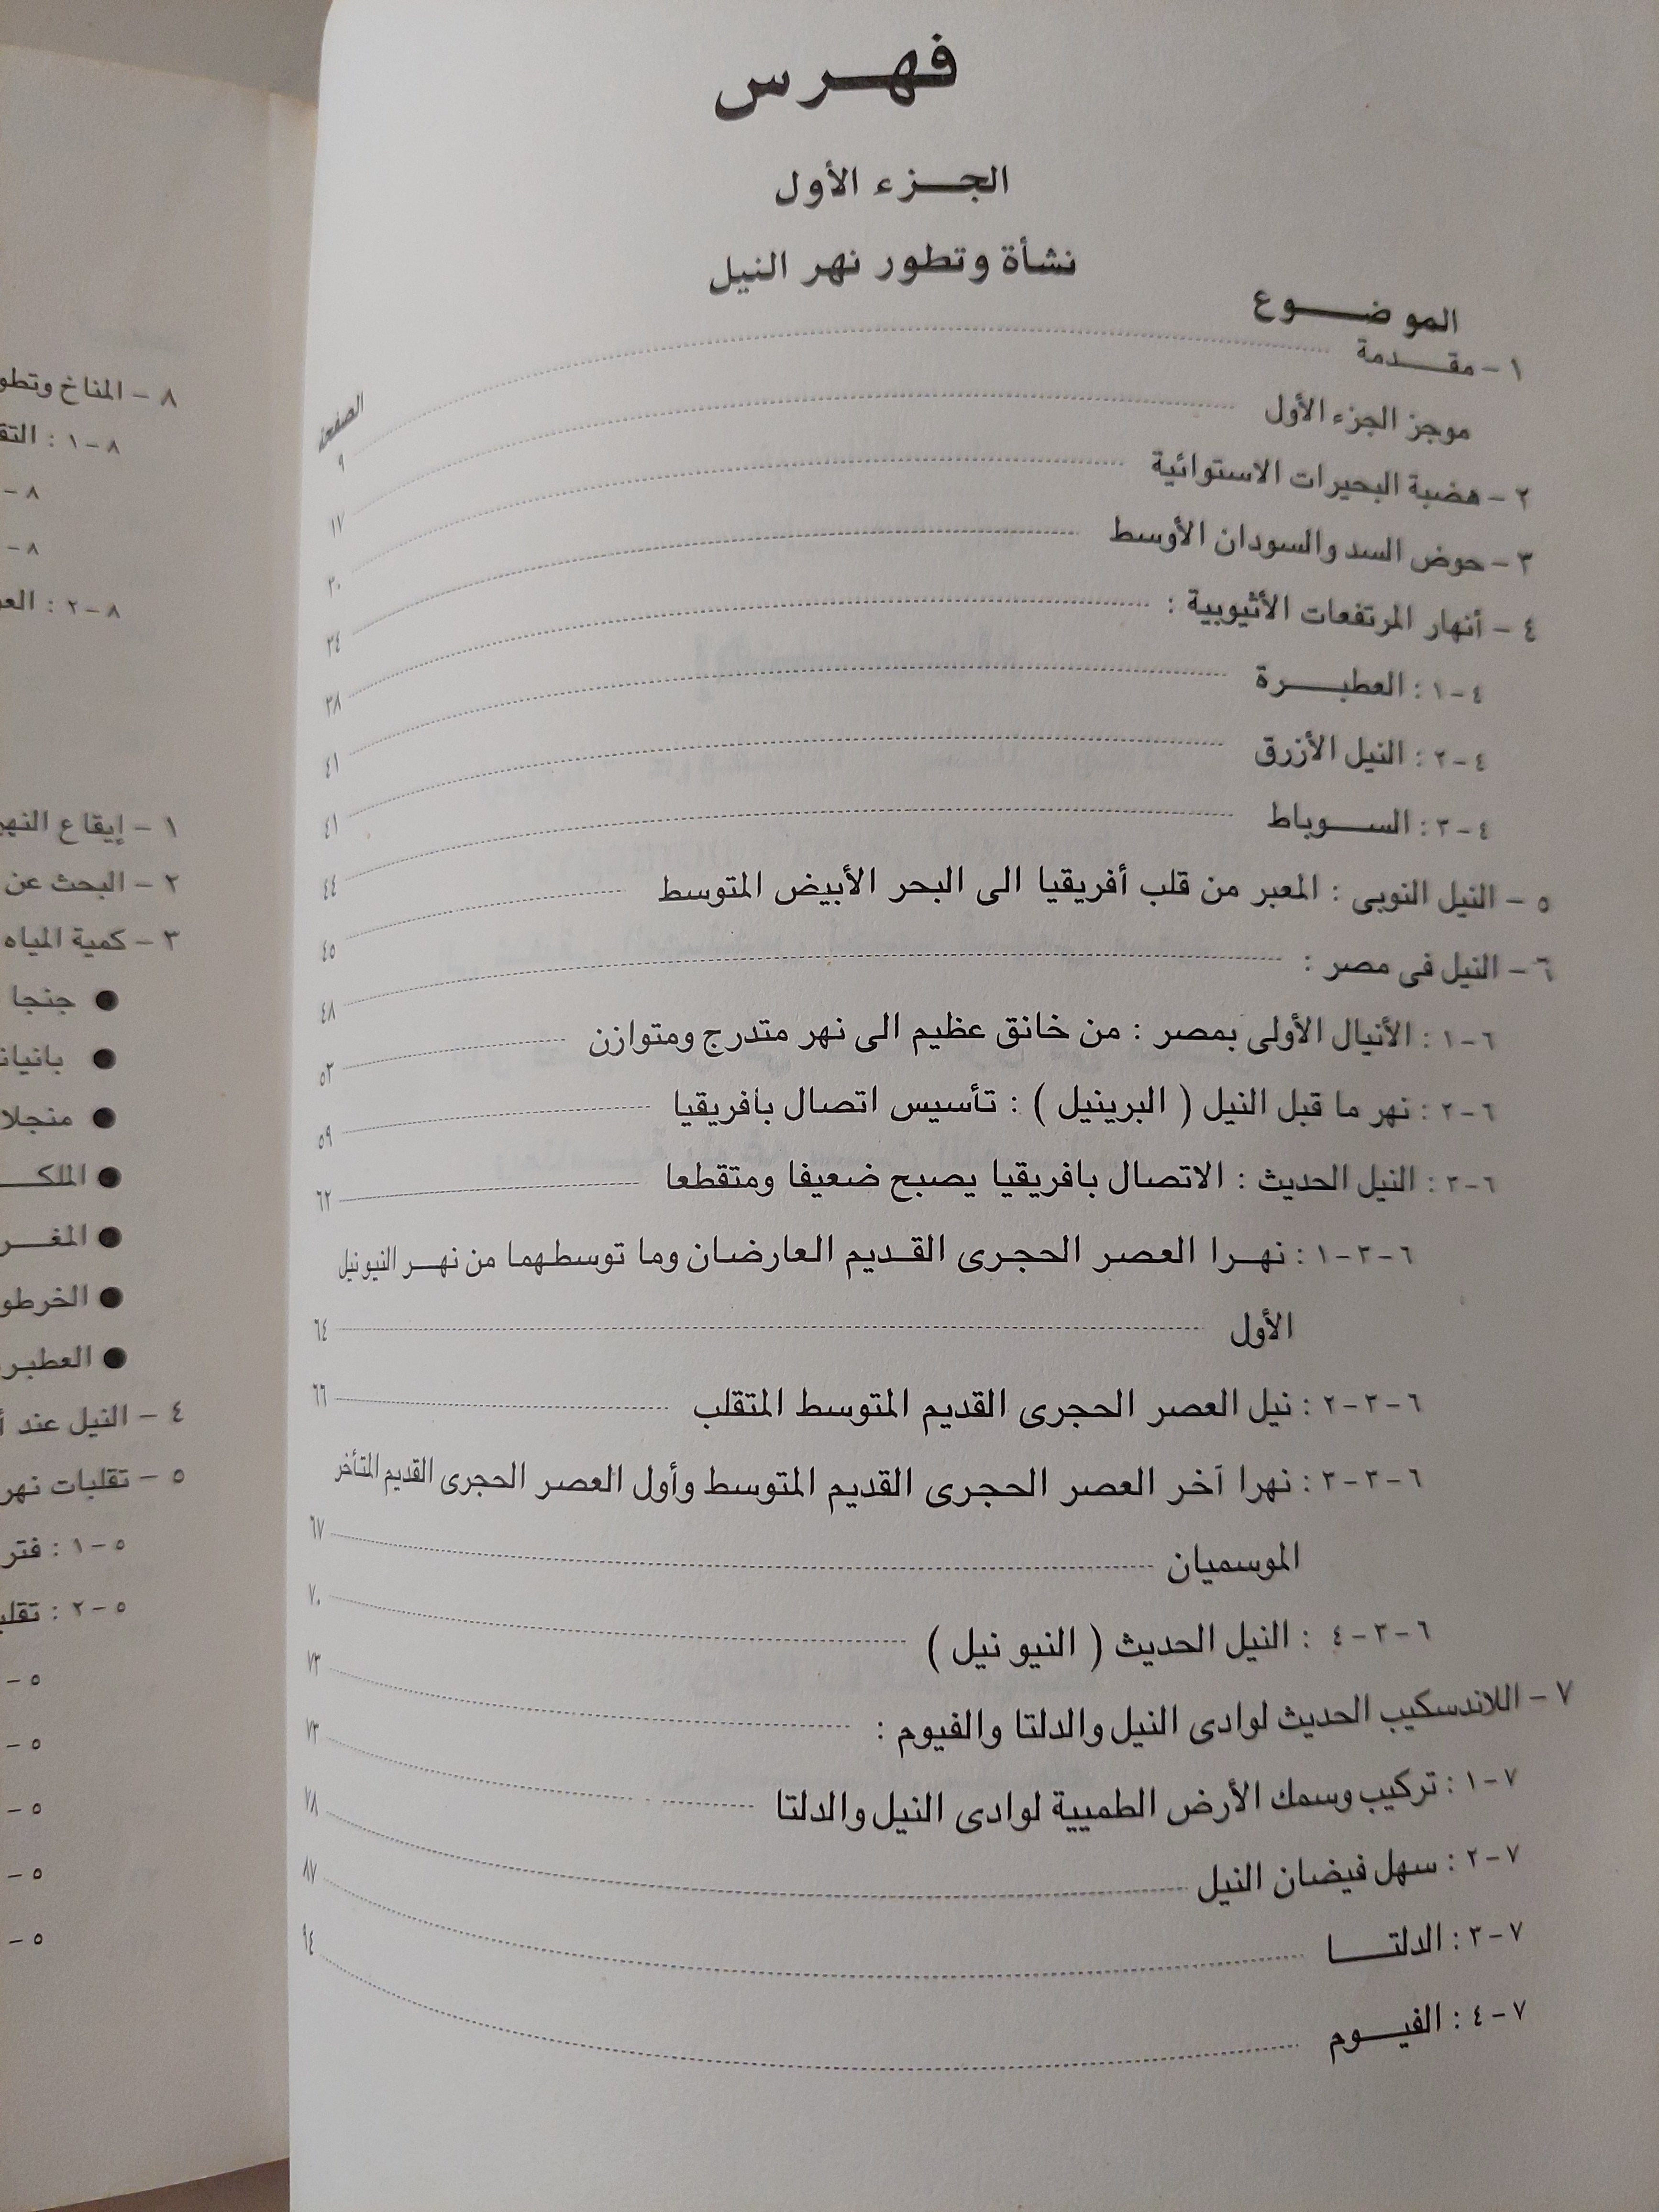 فهرس
الجزء الأول
نشأة وتطور نهر النيل
الموضوع الصفحة
١ - مقدمة ٩
موجز الجزء الأول ١٧
٢ - هضبة البحيرات الاستوائية ٣٠
٣ - حوض السد والسودان الأوسط ٣٤
٤ - أنهار المرتفعات الأثيوبية : ٣٨
٤-١ : العطبرة ٤١
٤-٢ : النيل الأزرق ٤١
٤-٣ : السوباط ٤٤
٥ - النيل النوبى : المعبر من قلب أفريقيا الى البحر الأبيض المتوسط ٤٥
٦ - النيل فى مصر : ٤٨
٦-١ : الأنيال الأولى بمصر : من خانق عظيم الى نهر متدرج ومتوازن ٥٣
٦-٢ : نهر ما قبل النيل ( البرينيل ) : تأسيس اتصال بافريقيا ٥٩
٦-٣ : النيل الحديث : الاتصال بافريقيا يصبح ضعيفا ومتقطعا ٦٢
٦-٣-١ : نهرا العصر الحجرى القديم العارضان وما توسطهما من نهر النيونيل
الأول ٦٤
٦-٣-٢ : نيل العصر الحجرى القديم المتوسط المتقلب ٦٦
٦-٣-٣ : نهرا آخر العصر الحجرى القديم المتوسط وأول العصر الحجرى القديم المتأخر
الموسميان ٦٧
٦-٣-٤ : النيل الحديث ( النيو نيل ) ٧٠
٧ - اللاندسكيب الحديث لوادى النيل والدلتا والفيوم : ٧٣
٧-١ : تركيب وسمك الأرض الطميية لوادى النيل والدلتا ٧٣
٧-٢ : سهل فيضان النيل ٧٨
٧-٣ : الدلتا ٨٧
٧-٤ : الفيوم ٩٤
٨ - المناخ
٨-١ :
٨ -
٨ -
٨-٢ :
١ - إيقاع
٢ - البحث عن
٣ - كمية المياه
● جنجا
●
● منجلا
●
●
●
●
٤ - النيل عند
٥ - تقلبات نهر
٥-١ :
٥-٢ :
٥ -
٥ -
٥ -
٥ -
٥ -